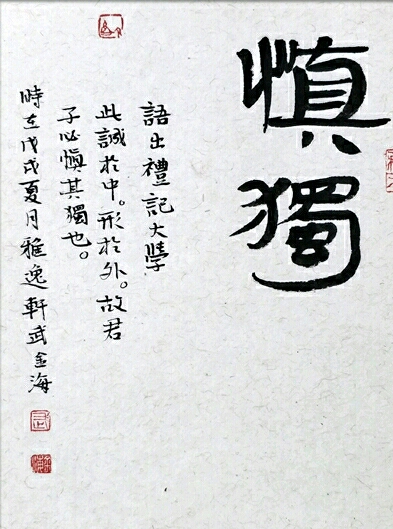 慎獨
語出禮記大學
此誠於中。形於外。故君
子必慎其獨也。
時在戊戌夏月雅逸軒武金海